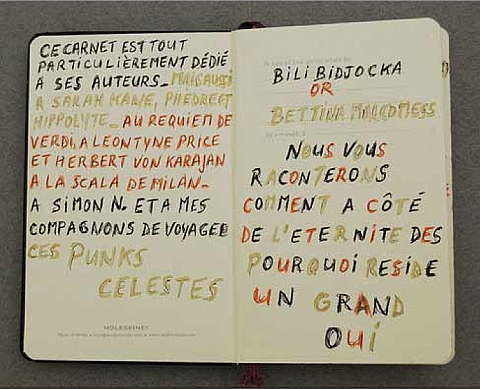 CE CARNET EST TOUT
PARTICULIÈREMENT DÉDIÉ
A SES AUTEURS_ MAIS AUSSI
A SARAH KANE, PHEDRE ET
HIPPOLYTE_ AU REQUIEM DE
VERDI, A LEONTYNE PRICE
ET HERBERT VON KARAJAN
A LA SCALA DE MILAN_
A SIMON N. ET A MES
COMPAGNONS DE VOYAGE
CES PUNKS
CELESTES
MOLESKINE
BILI BIDJOCKA
OR
BETTINA MALCOMESS
NOUS VOUS
RACONTERONS
COMMENT A CÔTÉ
DE L'ETERNITE DES
POURQUOI RESIDE
UN GRAND
OUI